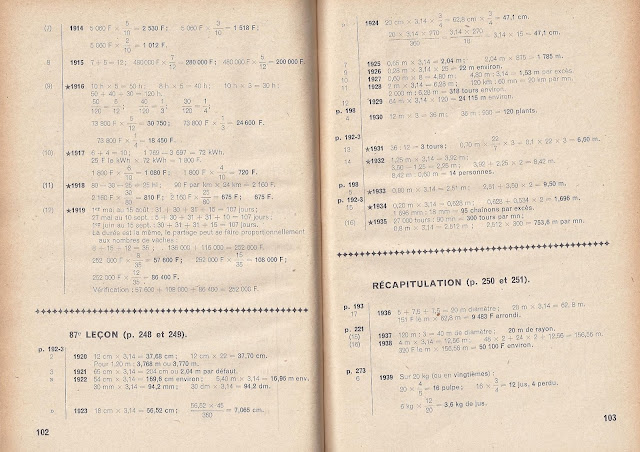 (7) 1914 5 060 F × 5/10 = 2 530 F ; 5 060 F × 3/10 = 1 518 F ;
5 060 F × 2/10 = 1 012 F.
8 1915 7 + 5 = 12 ; 480 000 F × 7/12 = 280 000 F ; 480 000 F × 5/12 = 200 000 F.
(9) ★1916 10 h × 5 = 50 h ; 8 h × 5 = 40 h ; 10 h × 3 = 30 h ;
50 + 40 + 30 = 120 h.
73 800 F × 5/12 = 30 750 ; 73 800 F × 1/3 = 24 600 F.
73 800 F × 1/4 = 18 450 F.
(10) ★1917 6 + 4 = 10 ; 1 769 − 3 697 = 72 kWh.
25 F le kWh × 72 kWh = 1 800 F.
1 800 F × 6/10 = 1 080 F ; 1 800 F × 4/10 = 720 F.
(11) ★1918 80 − 30 − 25 = 25 hl ; 90 F par km × 24 km = 2 160 F.
(12) ★1919 1er mai au 15 août : 31 + 30 + 31 + 15 = 107 jours ;
27 mai au 10 sept. : 5 + 30 + 31 + 31 + 10 = 107 jours ;
1er juin au 15 sept. : 30 + 31 + 31 + 15 = 107 jours.
La durée est la même, le partage peut se faire proportionnellement
aux nombres de vaches :
8 + 15 + 12 = 35 ; 136 000 + 116 000 = 252 000 F.
252 000 F × 8/35 = 57 600 F ; 252 000 F × 15/35 = 108 000 F ;
252 000 F × 12/35 = 86 400 F.
Vérification : 57 600 + 108 000 + 86 400 = 252 000 F.
87e LEÇON (p. 248 et 249).
p. 192-3
2 1920 12 cm × 3,14 = 37,68 cm ; 12 cm × 22/7 = 37,70 cm.
Pour 1,20 m : 3,768 m ou 3,770 m.
3 1921 65 cm × 3,14 = 204 cm ou 2,04 m par défaut.
» 1922 54 cm × 3,14 = 169,6 cm environ ; 5,40 m × 3,14 = 16,96 m env.
30 mm × 3,14 = 94,2 mm ; 30 cm × 3,14 = 94,2 dm.
» 1923 18 cm × 3,14 = 56,52 cm ; 56,52 × 45/360 = 7,065 cm.
102
» 1924 20 cm × 3,14 × 3/4 = 62,8 cm × 3/4 = 47,1 cm.
20 × 3,14 × 270/360 = 3,14 × 270/18 = 3,14 × 15 = 47,1 cm.
7 1925 0,65 m × 3,14 = 2,04 m ; 2,04 m × 875 = 1 785 m.
9 1926 0,28 m × 3,14 × 25 = 22 m environ.
10 1927 0,60 m × 8 = 4,80 m ; 4,80 m : 3,14 = 1,53 m par excès.
11 1928 2 m × 3,14 = 6,28 m ;
2 000 m : 6,28 m = 318 tours environ.
12 1929 64 m × 3,14 × 120 = 24 115 m environ.
p. 198
4 1930 12 m × 3 = 36 m ; 120 plants.
p. 192-3
13 ★1931 36 : 12 = 3 tours ; 0,70 m × 22/7 × 3 = 0,1 × 22 × 3 = 6,60 m.
14 ★1932 1,25 m × 3,14 = 3,92 m ;
3,50 − 1,25 = 2,25 m ; 3,92 + 2,25 × 2 = 8,42 m.
8,42 m : 0,60 = 14 personnes.
p. 198
5 ★1933 0,80 m × 3,14 = 2,51 m ; 9,50 m.
p. 192-3
15 ★1934 0,20 m × 3,14 = 0,628 m ; 0,628 + 0,534 × 2 = 1,696 m.
1 696 mm : 18 mm = 95 chaînons par excès.
(16) ★1935 27 000 tours : 90 mn = 300 tours par mn ;
0,8 m × 3,14 = 2,512 m ; 2,512 × 300 = 753,6 m par mn.
RÉCAPITULATION (p. 250 et 251).
p. 193
17 1936 5 + 7,5 + 7,5 = 20 m de diamètre ; 20 m × 3,14 = 62,8 m.
151 F le m × 62,8 m = 9 483 F arrondi.
p. 221
(15) 1937 120 m : 3 = 40 m de diamètre ; 20 m de rayon.
(16) 1938 4 m × 3,14 = 12,56 m ; 48 × 2 + 24 × 2 + 12,56 = 156,56 m.
320 F le m × 156,56 m = 50 100 F environ.
p. 273
6 1939 Sur 20 kg (ou en vingtièmes) :
20 × 4/5 = 16 pulpe ; 16 × 3/4 = 12 jus, 4 perdu.
6 kg × 12/20 = 3,6 kg de jus.
103